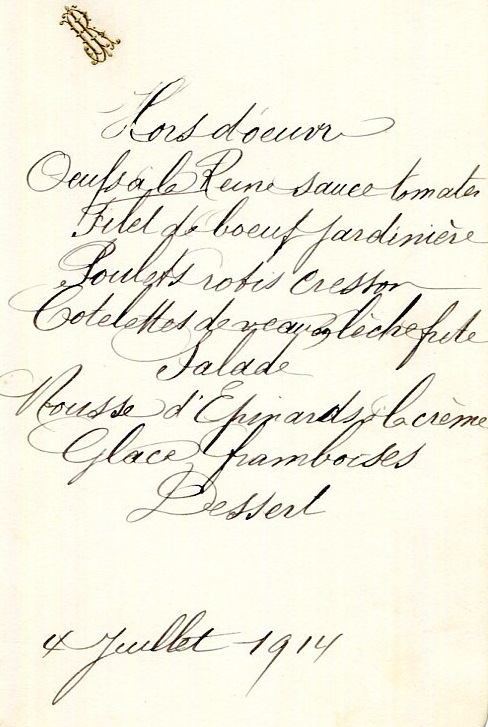 Hors d'oeuvr
Oeufs à la Reine sauce tomates
Filet de boeuf jardinière
Poulets rotis cresson
Cotelettes de veau lèchefrite
Salade
Mousse d'Epinards à la crème
Glace framboises
Dessert
4 Juillet 1914